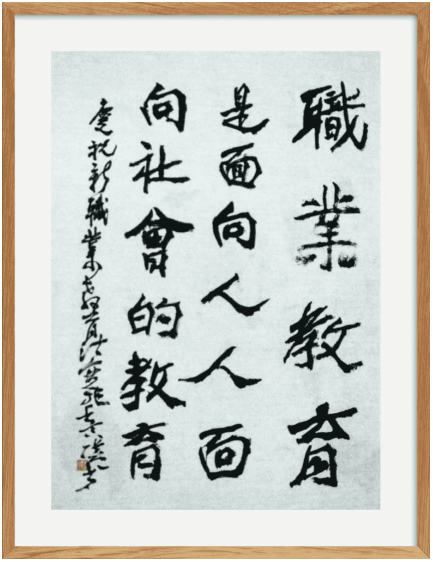 職業教育
是面向人人面
向社會的教育
慶祝新職業教育法實施